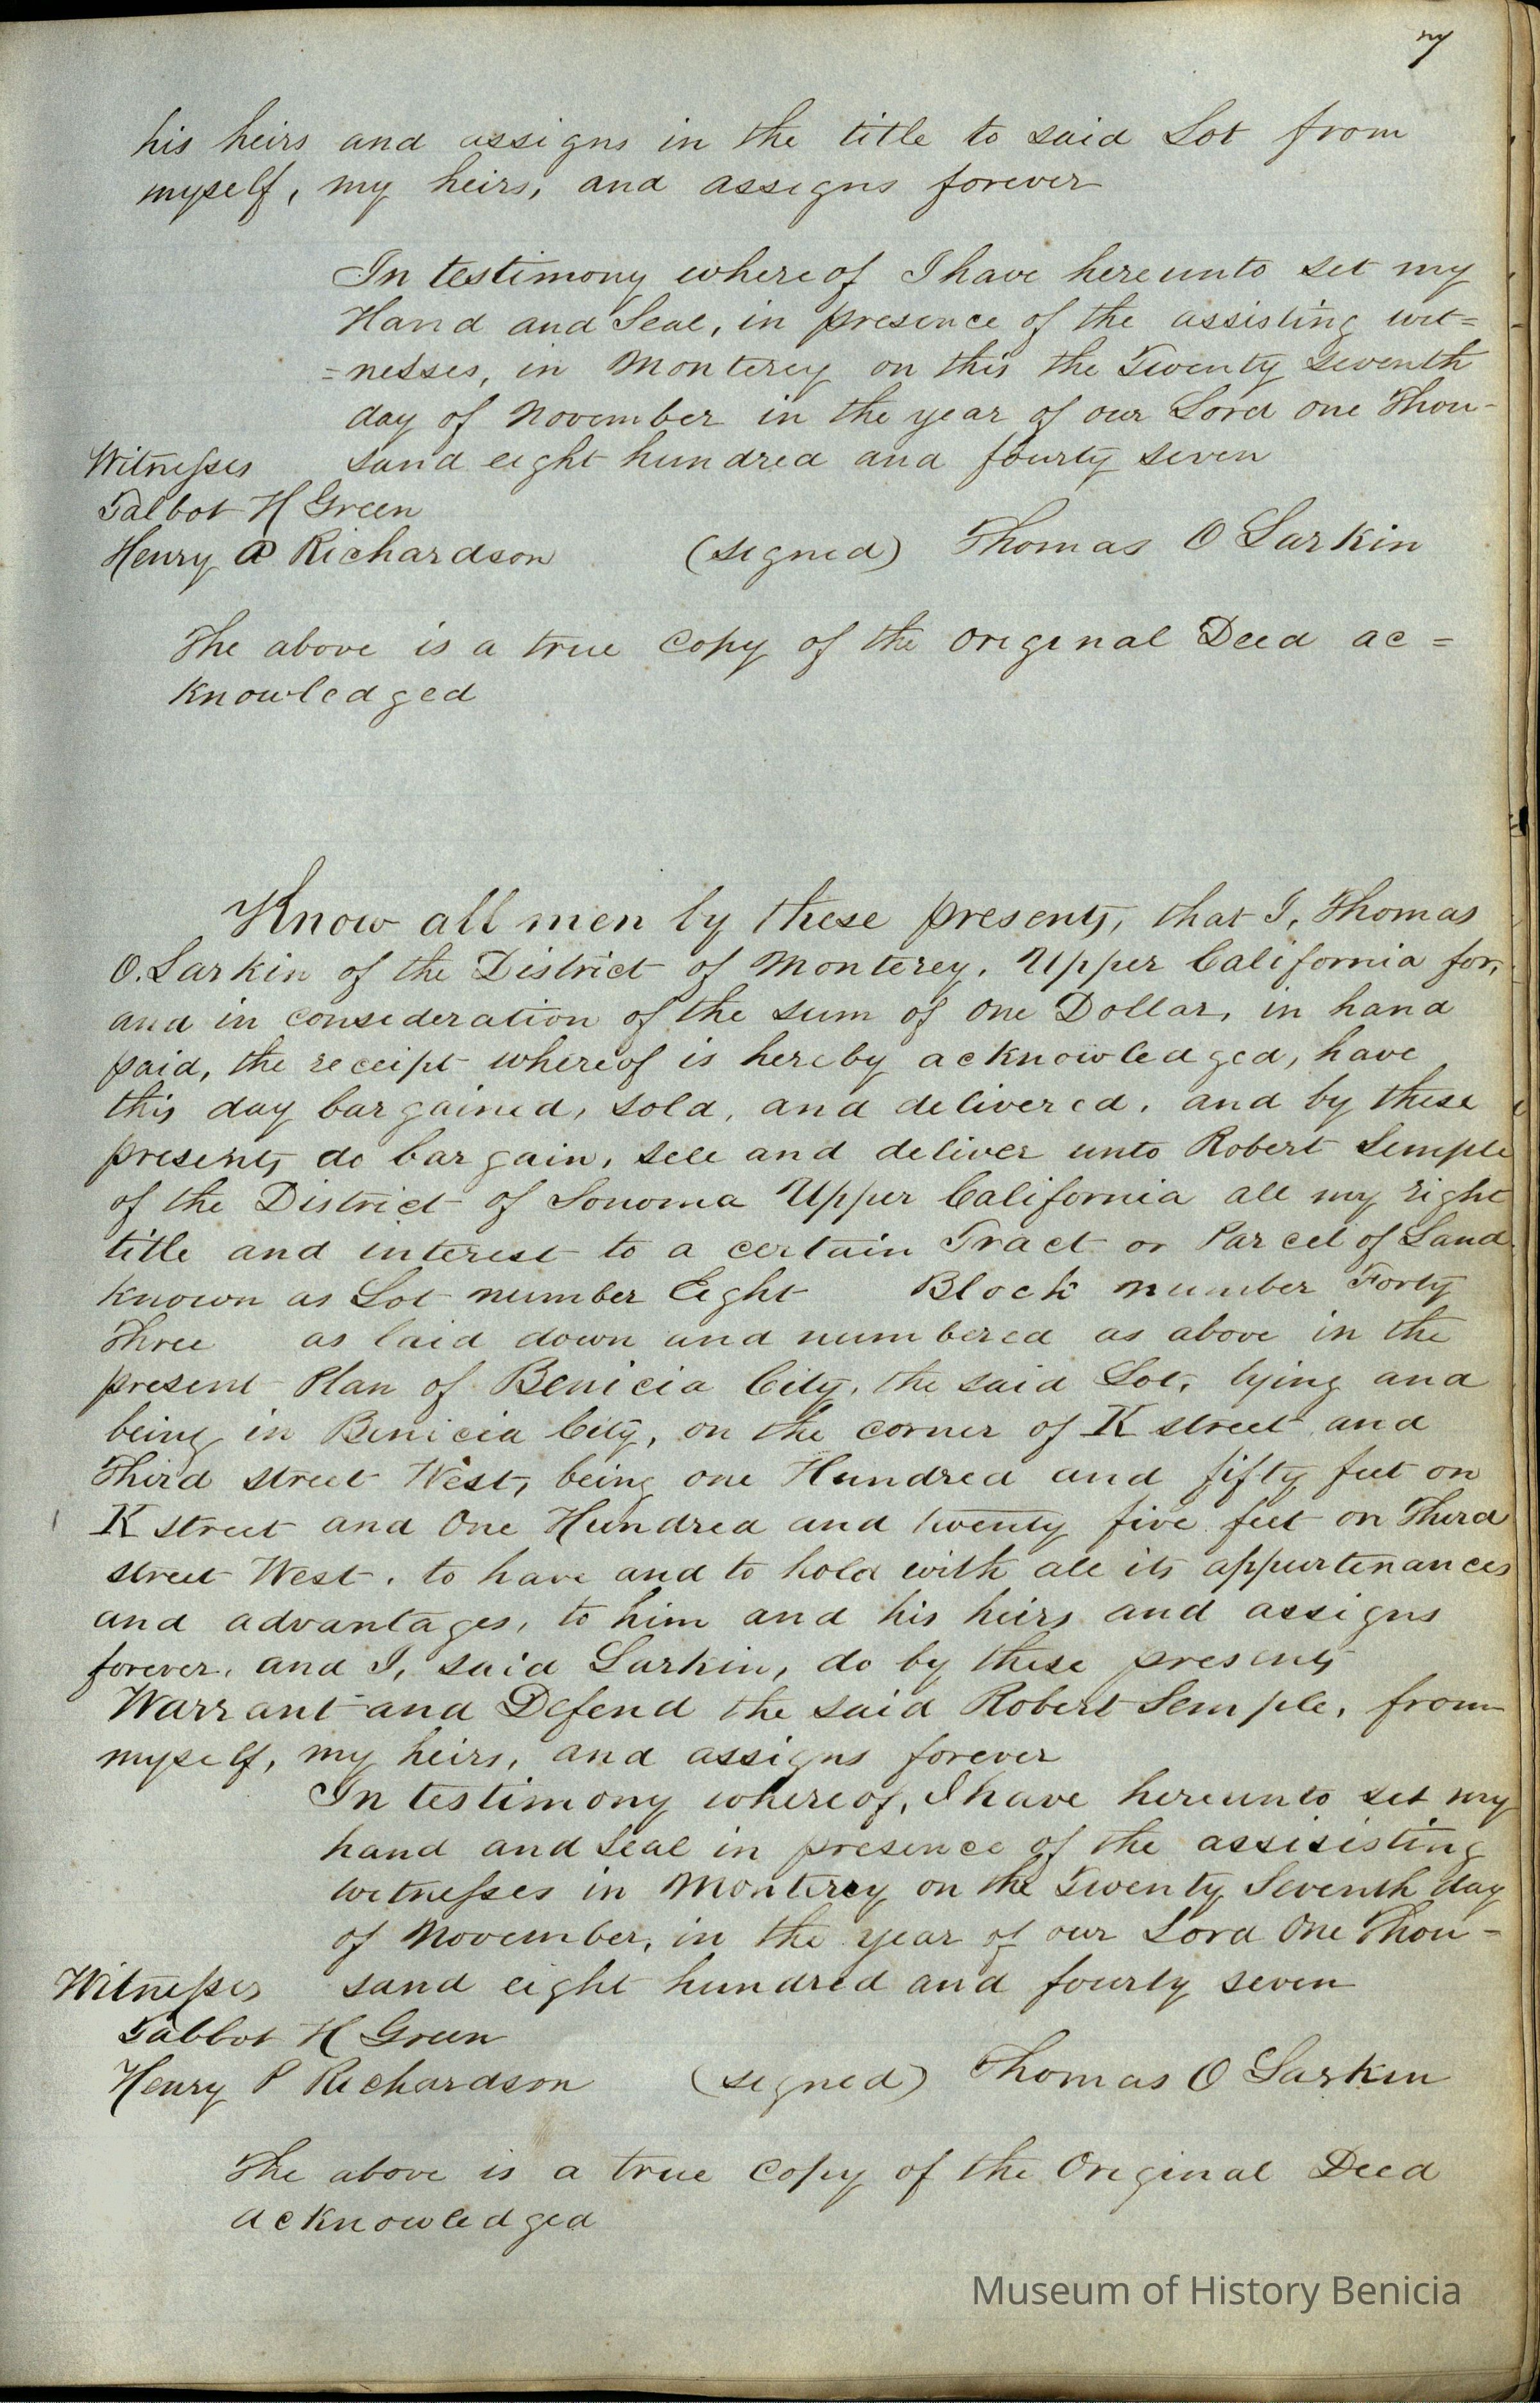 7
his heirs and assigns in the title to said Lot from
myself, my heirs, and assigns forever
In testimony whereof I have hereunto set my
Hand and Seal, in presence of the assisting wit=
=nesses, in Monterey on this the Twenty Seventh
day of November in the year of our Lord one Thou-
Witnesses sand eight hundred and fourty seven
Talbot H Green
Henry P Richardson (signed) Thomas O Larkin
The above is a true Copy of the original Deed ac=
knowledged
Know all men by these presents, that I, Thomas
O. Larkin of the District of Monterey, Upper California for,
and in consideration of the sum of One Dollar, in hand
paid, the receipt whereof is hereby acknowledged, have
this day bargained, sold, and delivered, and by these
presents do bargain, sell and deliver unto Robert Semple
of the District of Sonoma Upper California all my right
title and interest to a certain Tract or Parcel of Land
known as Lot number Eight Block number Forty
Three as laid down and numbered as above in the
present Plan of Benicia City, the said Lot, lying and
being in Benicia City, on the corner of K street and
Third street West, being one Hundred and fifty feet on
K street and One Hundred and twenty five feet on Third
street West, to have and to hold with all its appurtenances
and advantages, to him and his heirs and assigns
forever, and I, said Larkin, do by these presents
Warrant and Defend the said Robert Semple, from
myself, my heirs, and assigns forever
In testimony whereof, I have hereunto set my
hand and seal in presence of the assisisting
witnesses in Monterey on the Twenty Seventh day
of November, in the year of our Lord One Thou-
Witnesses sand eight hundred and fourty seven
Talbot H Green
Henry P Richardson (signed) Thomas O Larkin
The above is a true Copy of the Original Deed
acknowledged
Museum of History Benicia